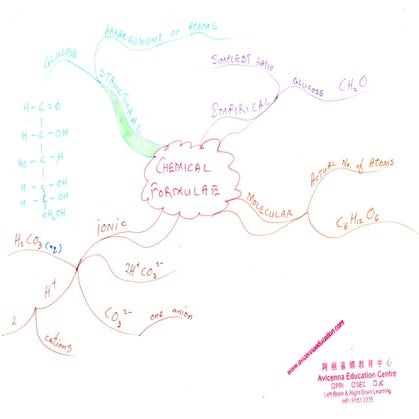 ARRANGEMENT OF ATOMS
GLUCOSE
STRUCTURAL
H - C = O
H - C - OH
HO - C - H
H - C - OH
H - C - OH
CH₂OH
SIMPLEST RATIO
EMPIRICAL
GLUCOSE
CH₂O
CHEMICAL
FORMULAE
MOLECULAR
ACTUAL No. of ATOMS
C₆H₁₂O₆
ionic
H₂CO₃(aq)
2H⁺CO₃²⁻
H⁺
2
cations
CO₃²⁻
one anion
www.avicennaeducation.com
阿維森娜教育中心
Avicenna Education Centre
□PRI □SEC □JC
Left Brain & Right Brain Learning